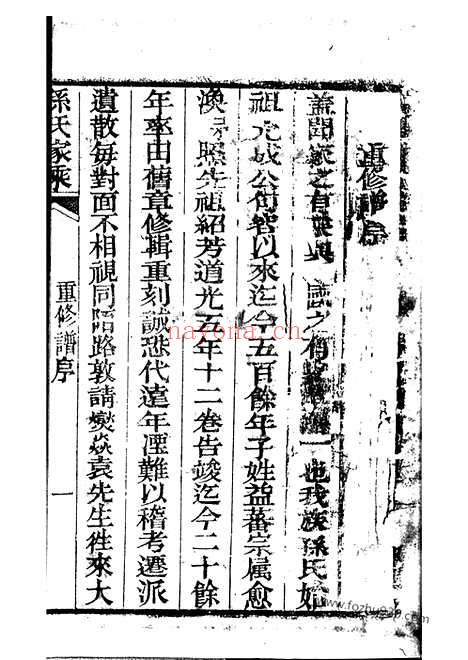 重修譜序
蓋聞家之有乘與國之有一也我族孫氏始
祖元成公句容以來迄今五百餘年子姓益蕃宗属愈
渙照先祖紹芳道光五年十二卷告竣迄今二十餘
年率由舊章修輯重刻誠恐代遠年湮難以稽考遷派
遺散每對面不相視同陌路敦請爕焱袁先生徃來大
孫氏家乘
重修譜序
一
nayona.cn
www.fozhu920.com